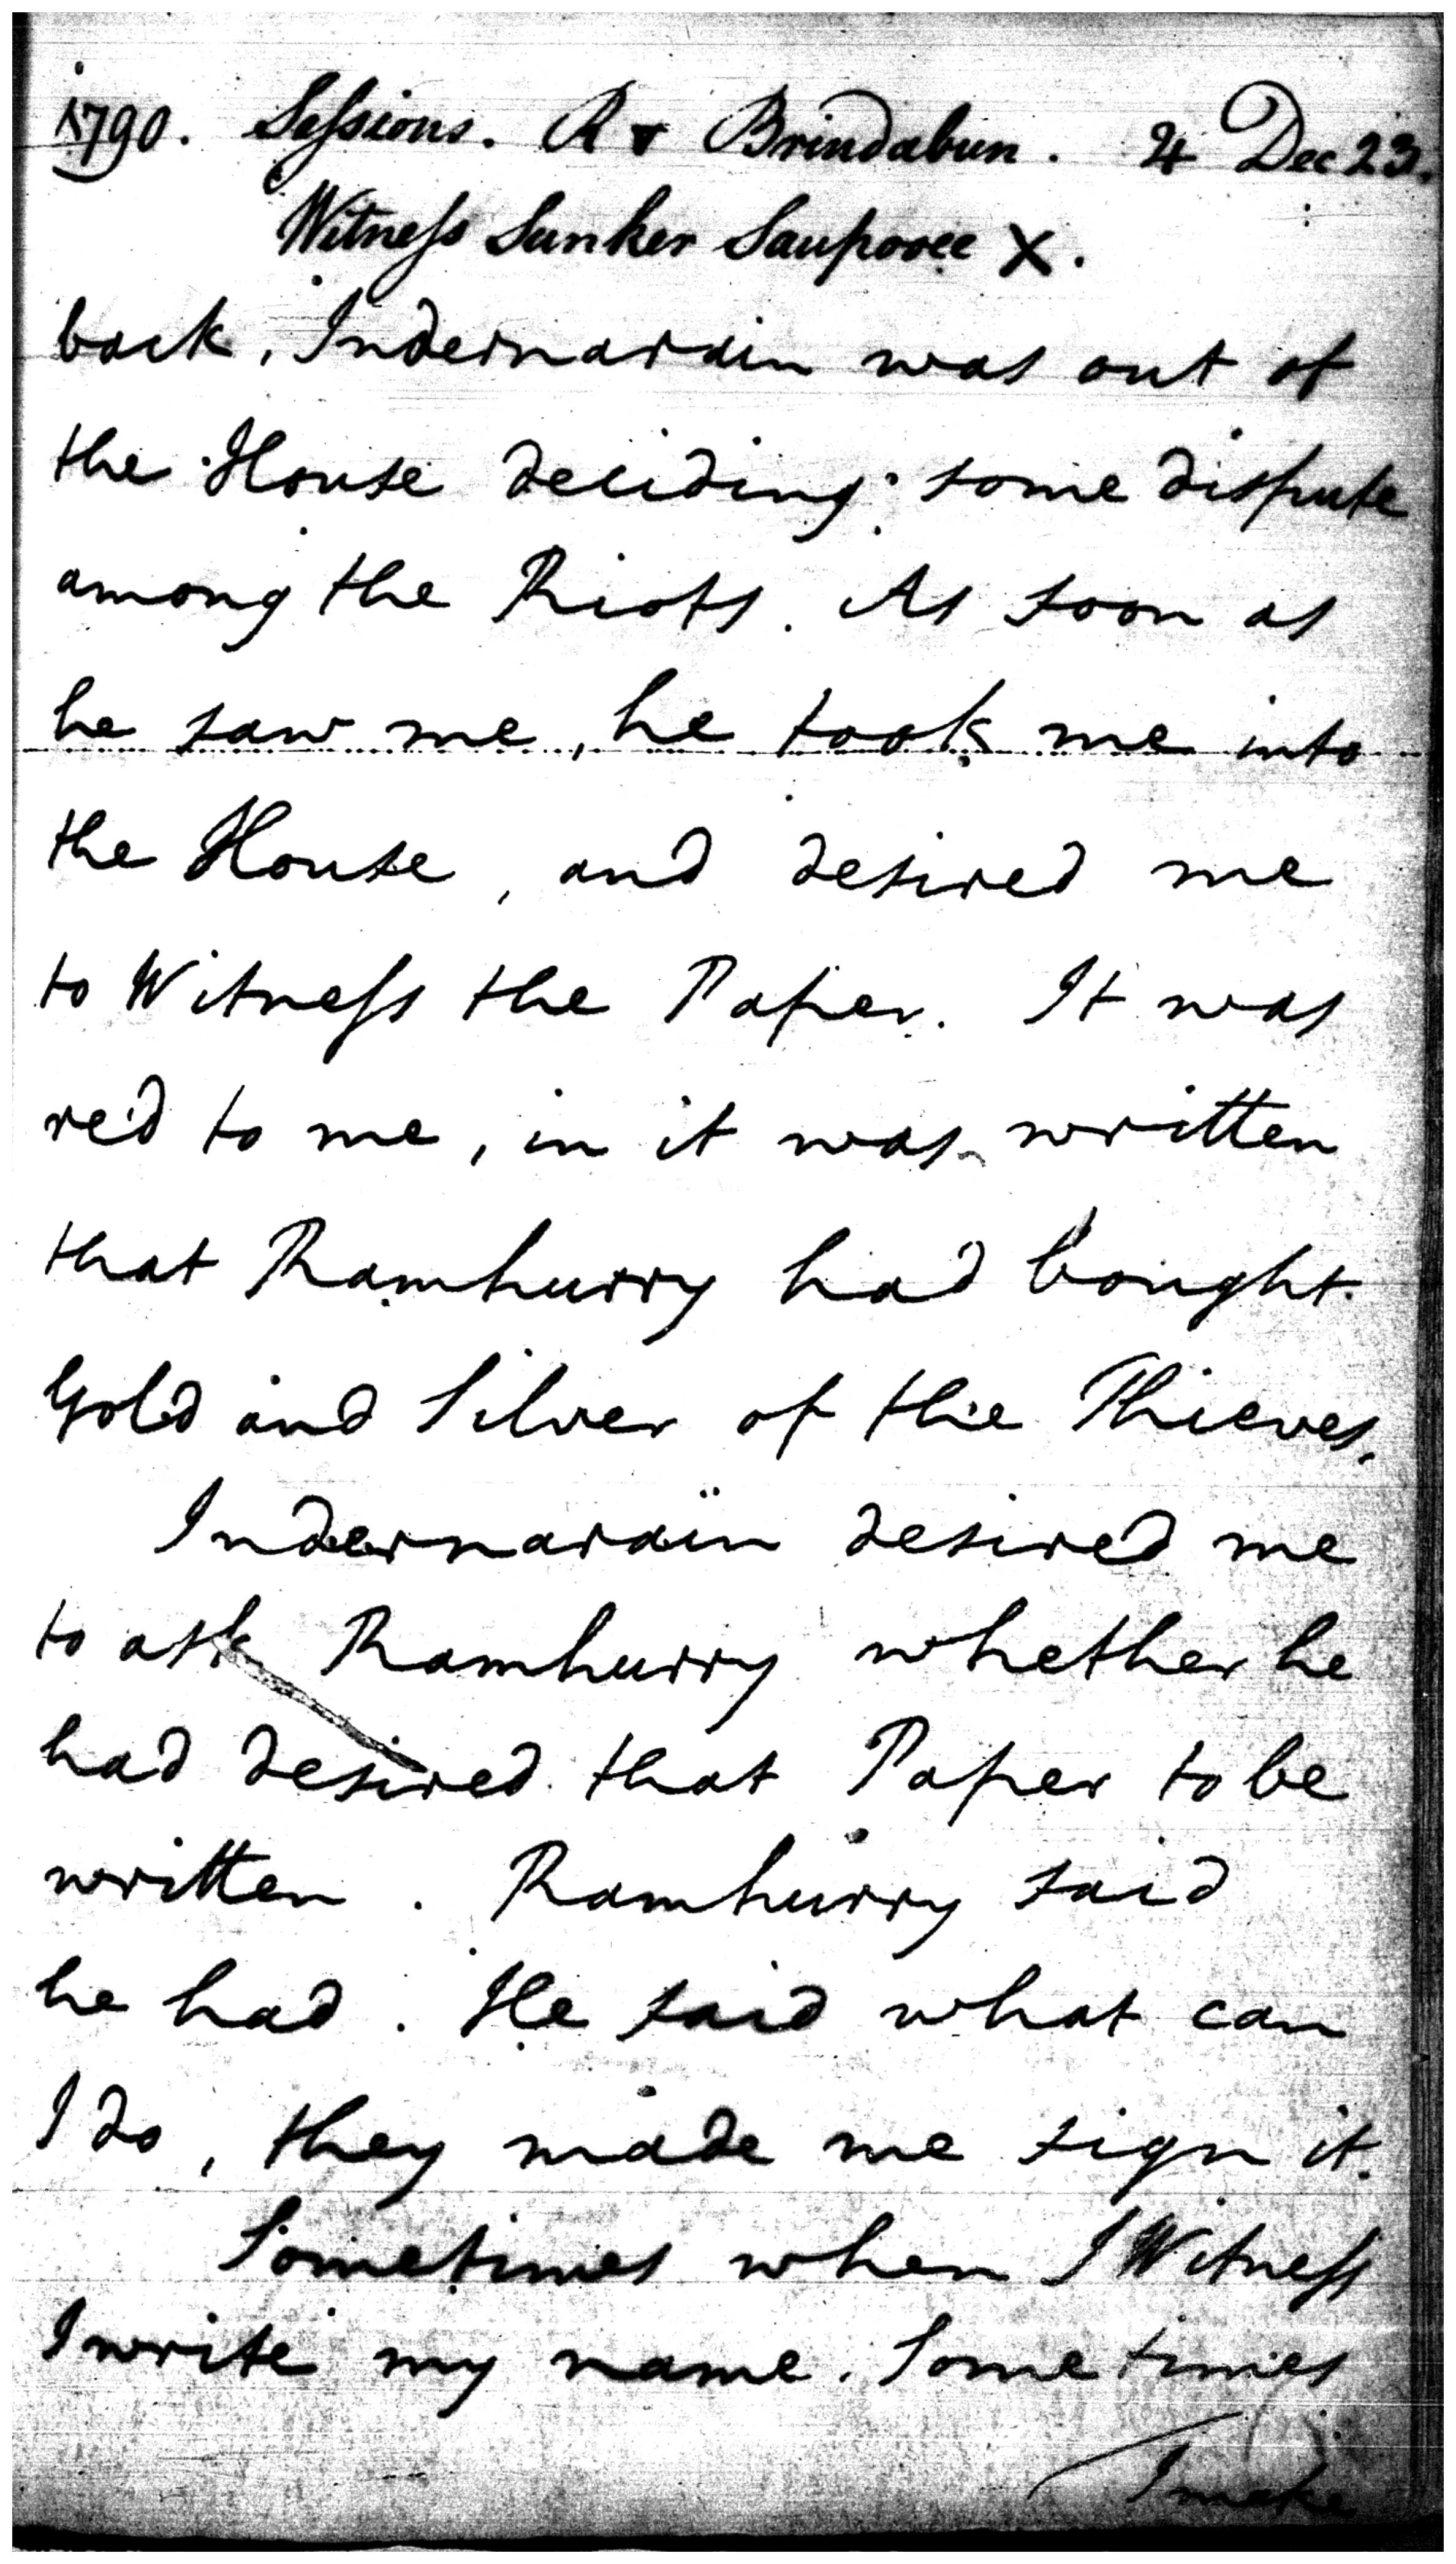 1790. Sessions. R v Brindabun. 24 Dec 23.
Witness Sunker Sauporee X.
back, Indernarain was out of
the House deciding some dispute
among the Riots. As soon as
he saw me, he took me into
the House, and desired me
to Witness the Paper. It was
red to me, in it was written
that Ramhurry had bought
Gold and Silver of the Thieves.
Indernaraïn desired me
to ask Ramhurry whether he
had desired that Paper to be
written. Ramhurry said
he had. He said what can
I do, they made me sign it.
Sometimes when I Witness
I write my name. Sometimes
I make